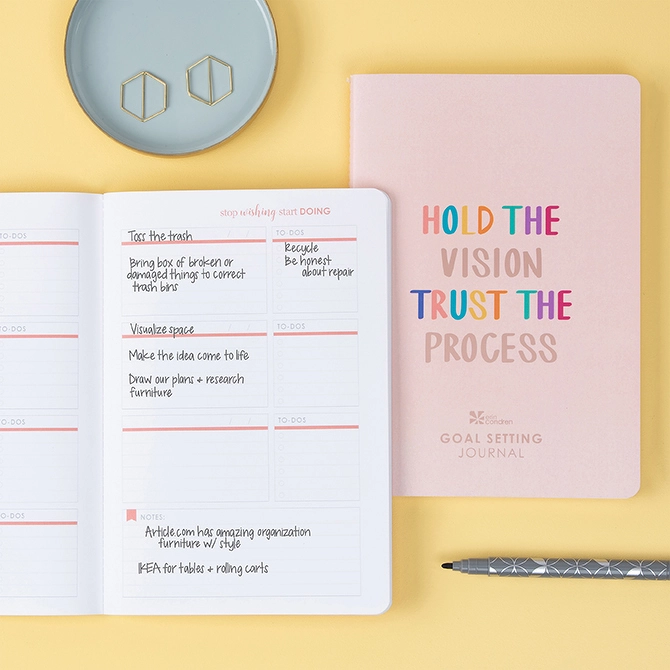 stop wishing start DOING
TO-DOS
Toss the trash
Bring box of broken or
damaged things to correct
trash bins
TO-DOS
Recycle
Be honest
about repair
TO-DOS
Visualize space
Make the idea come to life
Draw our plans + research
furniture
TO-DOS
TO-DOS
TO-DOS
TO-DOS
NOTES:
Article.com has amazing organization
furniture w/ style
IKEA for tables + rolling carts
HOLD THE
VISION
TRUST THE
PROCESS
erin
condren
GOAL SETTING
JOURNAL